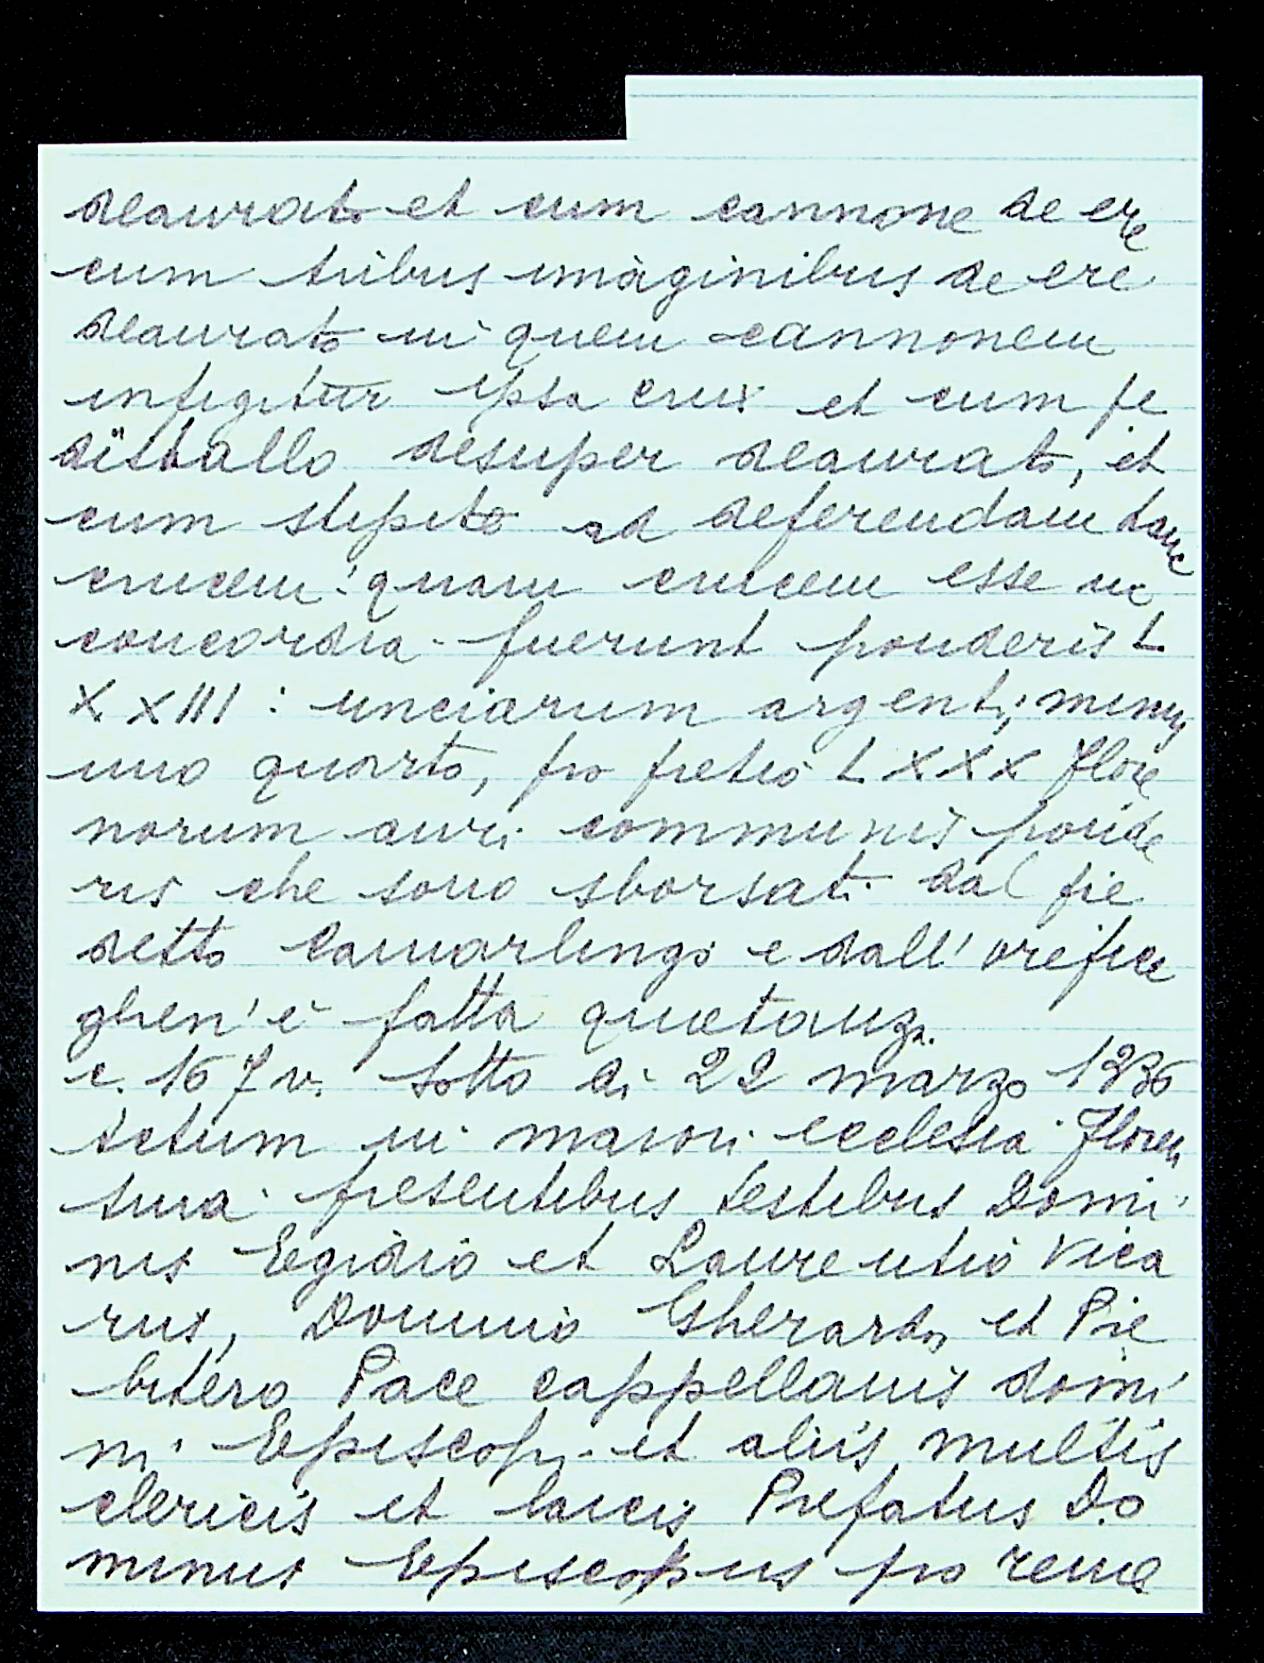 deaurato et cum cannone de ere
cum tribus imaginibus de ere
deaurato in quem cannonem
infigitur ipsa crux et cum pe
distallo desuper deaurato, et
cum stipite ad deferendam hanc
crucem: quam crucem esse in
concordia fuerunt ponderis L
XXIII: unciarum argenti, minus
uno quarto, pro pretio LXXX Flore
norum auri communis ponde
ris che sono sborsati dal pre
detto Camarlingo e dall'orefice
ghen'è fatta quietanza.
c. 167 v. sotto di 22 marzo 1336
Actum in maiori ecclesia Floren
tina presentibus testibus Domi
nis Egidio et Laurentio Vica
riis, Domino Gherardo et Pre
bitero Pace cappellanis domi
ni Episcopi et aliis multis
clericis et laicis Prefatus Do
minus Episcopus pro reme